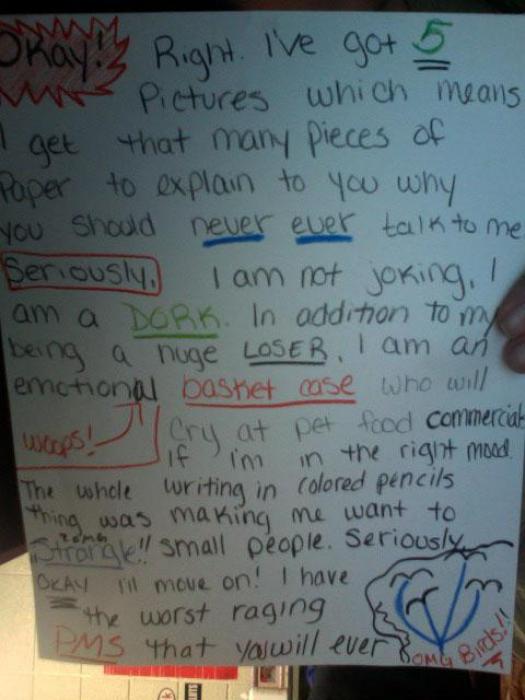 Okay! Right. I've got 5
Pictures which means
I get that many pieces of
Paper to explain to you why
you should never ever talk to me
Seriously. I am not joking. I
am a DORK. In addition to my
being a huge LOSER, I am an
emotional basket case who will
woops! Cry at pet food commercials
if I'm in the right mood.
The whole writing in colored pencils
thing was making me want to
zomg
Strangle!! small people. Seriously
OKAY I'll move on! I have
the worst raging
PMS that you will ever
OMG Birds!!